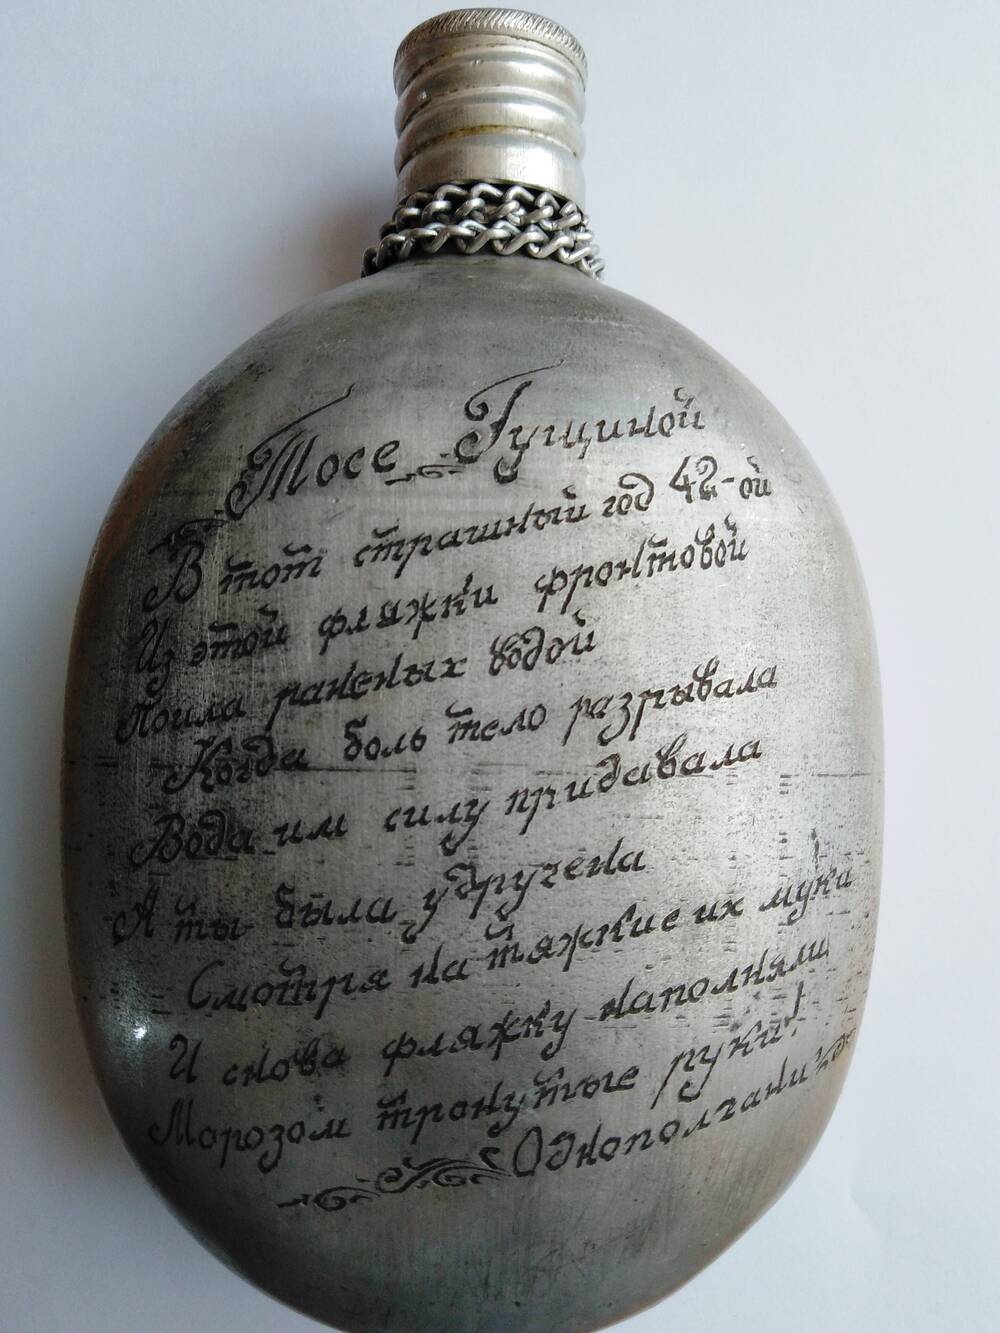 Тосе Гущиной
В тот страшный год 42-ой
Из этой фляжки фронтовой
Поила раненых водой
Когда боль тело разрывала
Вода им силу придавала
А ты была удручена
Смотря на тяжкие их муки
И снова фляжку наполняли
Морозом тронутые руки!
Однополчани